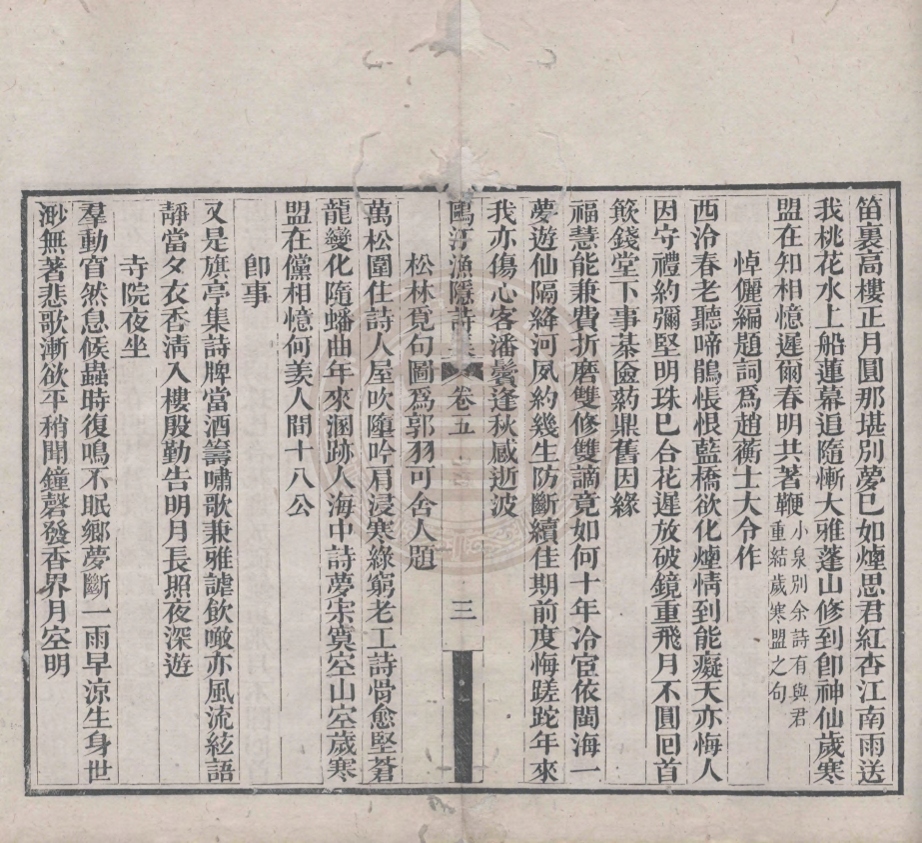 笛裏高樓正月圓那堪別夢已如煙思君紅杏江南雨送
我桃花水上船蓮幕追隨慚大雅蓬山修到卽神仙歲寒
盟在知相憶遲爾春明共著鞭小泉別余詩有與君重結歲寒盟之句
悼儷編題詞爲趙蘅士大令作
西泠春老聽啼鵑悵恨藍橋欲化煙情到能癡天亦悔人
因守禮約彌堅明珠已合花遲放破鏡重飛月不圓囘首
簸錢堂下事棊匳葯鼎舊因緣
福慧能兼費折磨雙修雙謫竟如何十年冷宦依閩海一
夢遊仙隔絳河夙約幾生防斷續佳期前度悔蹉跎年來
我亦傷心客潘鬢逢秋感逝波
鷗汀漁隱詩集 卷五 三
松林覓句圖爲郭羽可舍人題
萬松圍住詩人屋吹墮吟肩浸寒綠窮老工詩骨愈堅蒼
龍變化隨蟠曲年來溷跡人海中詩夢宗寞空山空歲寒
盟在儻相憶何羡人間十八公
卽事
又是旗亭集詩牌當酒籌嘯歌兼雅謔飮噉亦風流絃語
靜當夕衣香淸入樓殷勤告明月長照夜深遊
寺院夜坐
羣動窅然息候蟲時復鳴不眠鄉夢斷一雨早涼生身世
渺無著悲歌漸欲平稍聞鐘磬發香界月空明